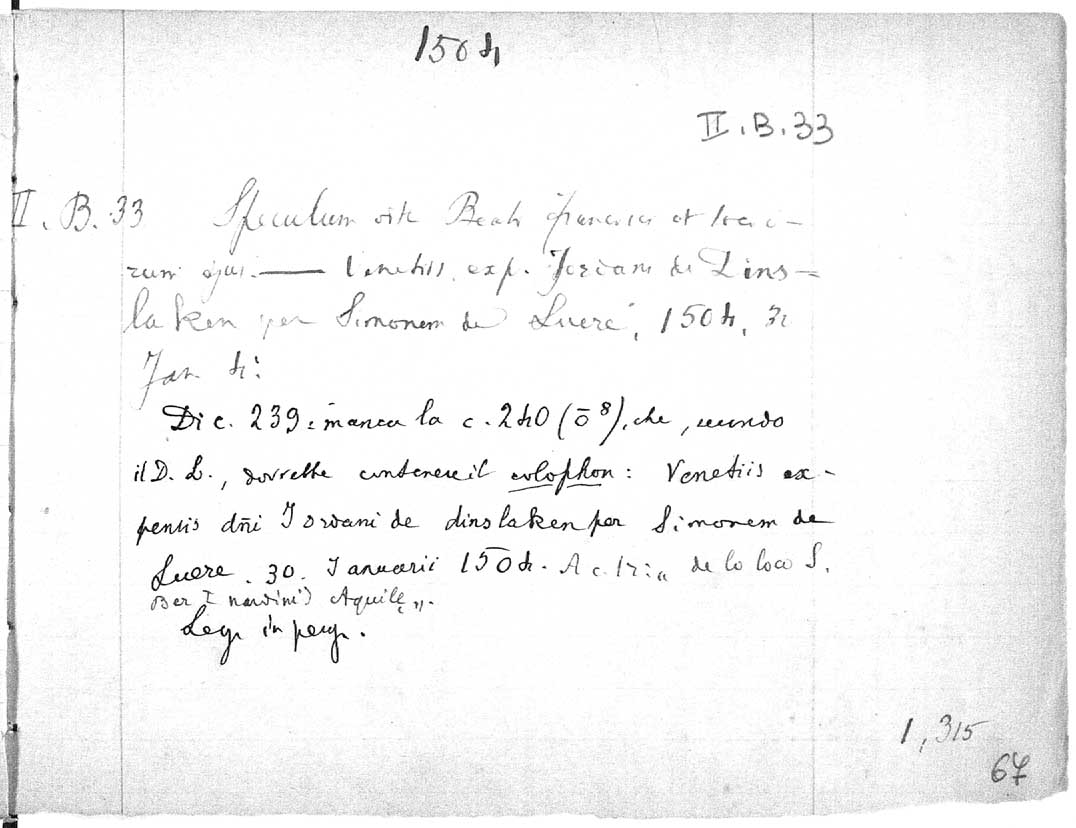 1504
II.B.33
II.B.33 Speculum vite Beati francisci et socio-
rum ejus. — Venetiis, exp. Jordani de Dins=
laken per Simonem de Luere, 1504, 30
Jan. 4:
Di c. 239: manca la c. 240 (ō⁸), che, secondo
il D. L., dovrebbe contenere il colophon: Venetiis ex-
pensis dñi Iordani de dinslaken per Simonem de
Luere. 30. Ianuarii 1504. A c. 1r: „ de lo loco S.
Ber[nardini] Aquile „.
Leg. in perg.
1,315
67